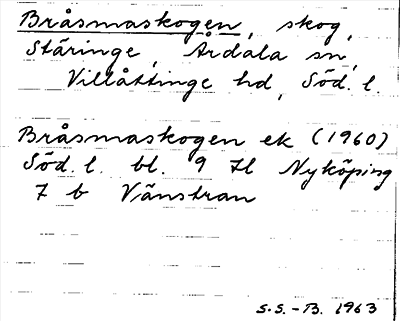 Bråsmaskogen, skog,
Stäringe, Årdala sn,
Villåttinge hd, Söd. l.
Bråsmaskogen ek (1960)
Söd. l. bl. 9 H Nyköping
7 b Vänstran
S.S.-B. 1963